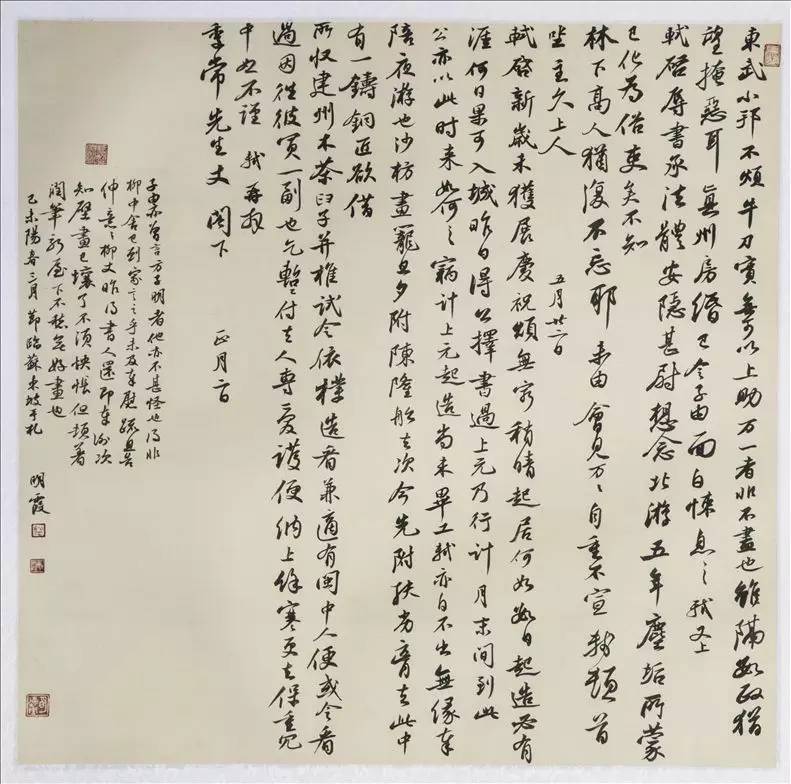 東武小邦不煩牛刀實無可以上助万一者非不盡也雖隔數政猶
望掩惡耳 真州房緡已令子由面白悚息之軾又上
軾啓辱書承法體安隱甚尉想念北游五年塵垢所蒙
已化為俗吏矣不知
林下高人猶復不忘耶未由會見万々自重不宣軾頓首
坐主久上人 五月廿二日
軾啓新歲未獲展慶祝頌無窮稍晴起居何如數日起造必有
涯何日果可入城昨日得公擇書過上元乃行計月末間到此
公亦以此时来如何々竊計上元起造尚未畢工軾亦自不出無緣奉
陪夜游也沙枋畫籠旦夕附陳隆舩去次今先附扶劣膏去此中
有一鑄銅匠欲借
所収建州木茶臼子并椎試令依樣造看兼適有閩中人便或令看
過因往彼買一副也乞暫付去人專愛護便納上餘寒更乞保重冗
中恕不謹 軾再拜
季常先生丈閤下 正月二日
子由亦曾言方子明者他亦不甚怪也得非
柳中舍已到家言之乎未及奉慰疏且告
仲意々柳丈昨得書人還即奉謝次
知壁畫已壞了不須怏悵但頓著
潤筆新屋下不愁無好畫也
己未陽春三月節臨蘇東坡手札 明霞